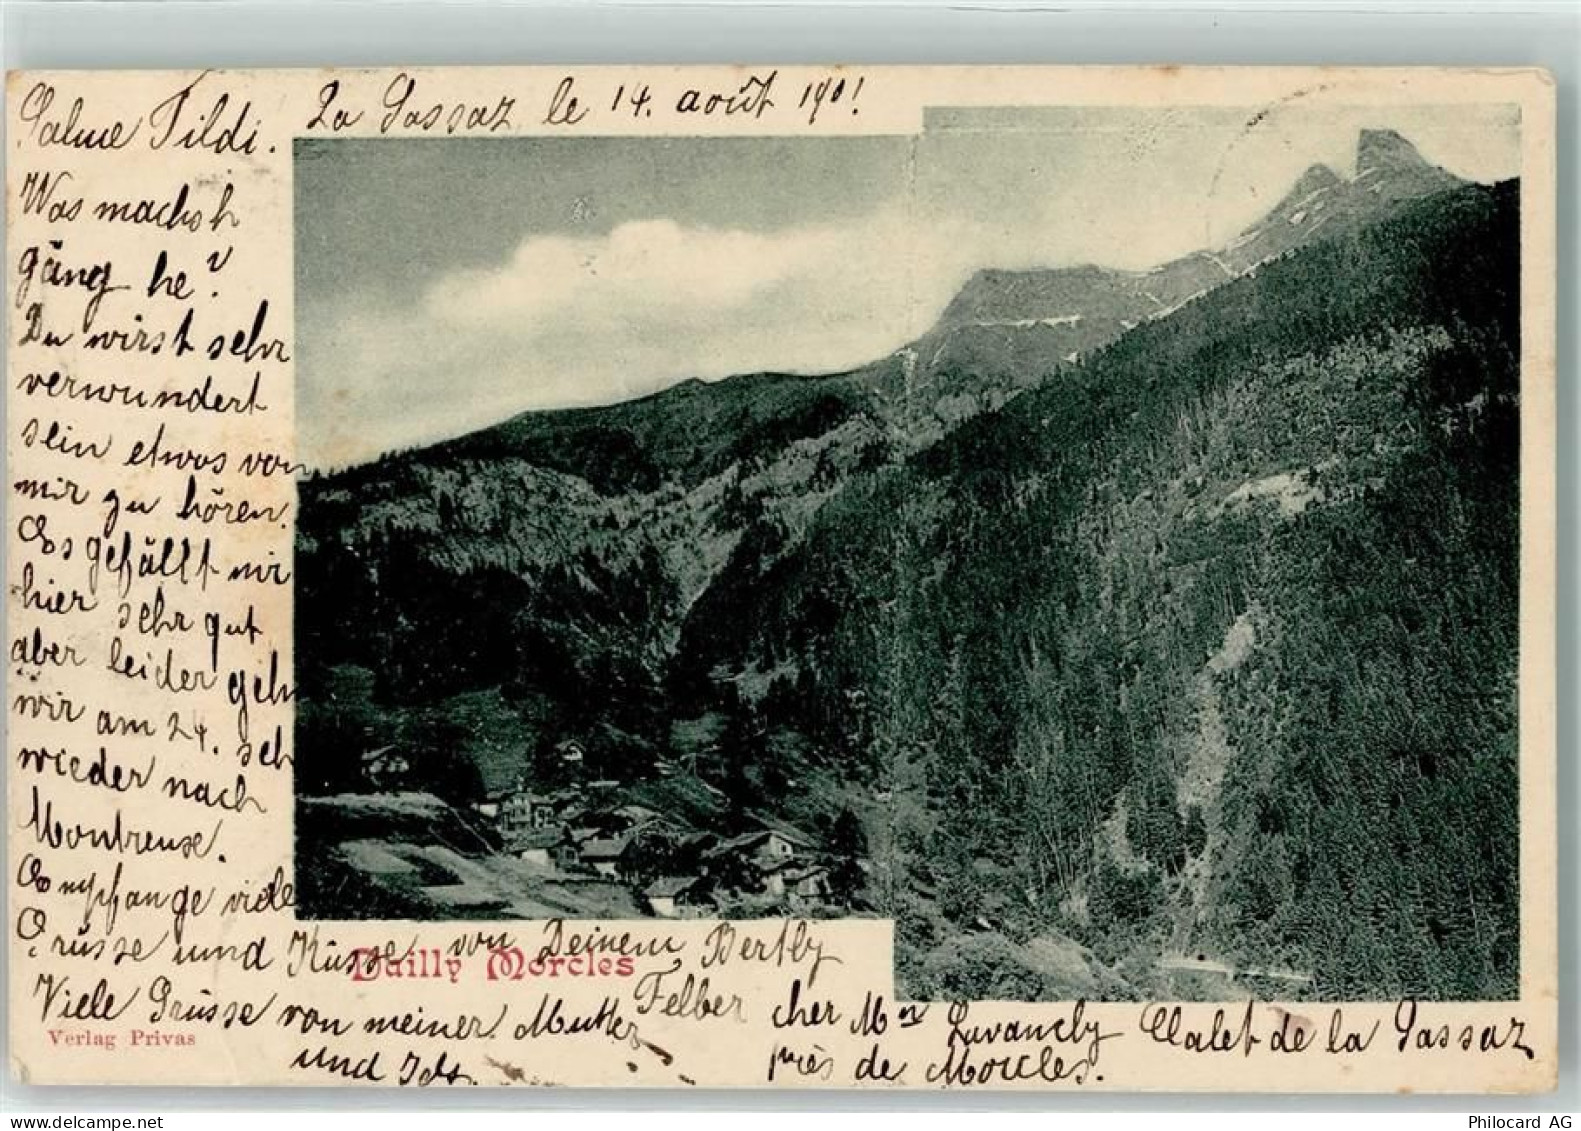 La Sassaz, le 14. août 1901
Salue Tildi.
Was machsh
gäng he?
Du wirst sehr
verwundert
sein etwas von
mir zu hören.
Es gefällt mir
hier sehr gut
aber leider gehn
wir am 24. sch
wieder nach
Montreuse.
Empfange viele
Grüsse und Küsse von Deinem Berthy
Felber
Dailly Morcles
Viele Grüsse von meiner Mutter
und Ida.
cher Mr Lavanchy Chalet de la Sassaz
près de Morcles.
Verlag Privas
Philocard AG